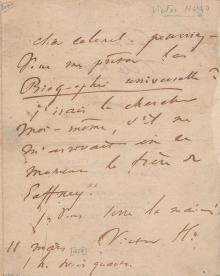 Victor Hugo
cher colonel, pourriez-
vous me prêter la
Biographie universelle ?
j'irais la chercher
moi-même, s'il ne
m'arrivait in
le frère de
Gaffney.
Je vous serre la main
Victor H.
11 mars
1 h. trois quarts.